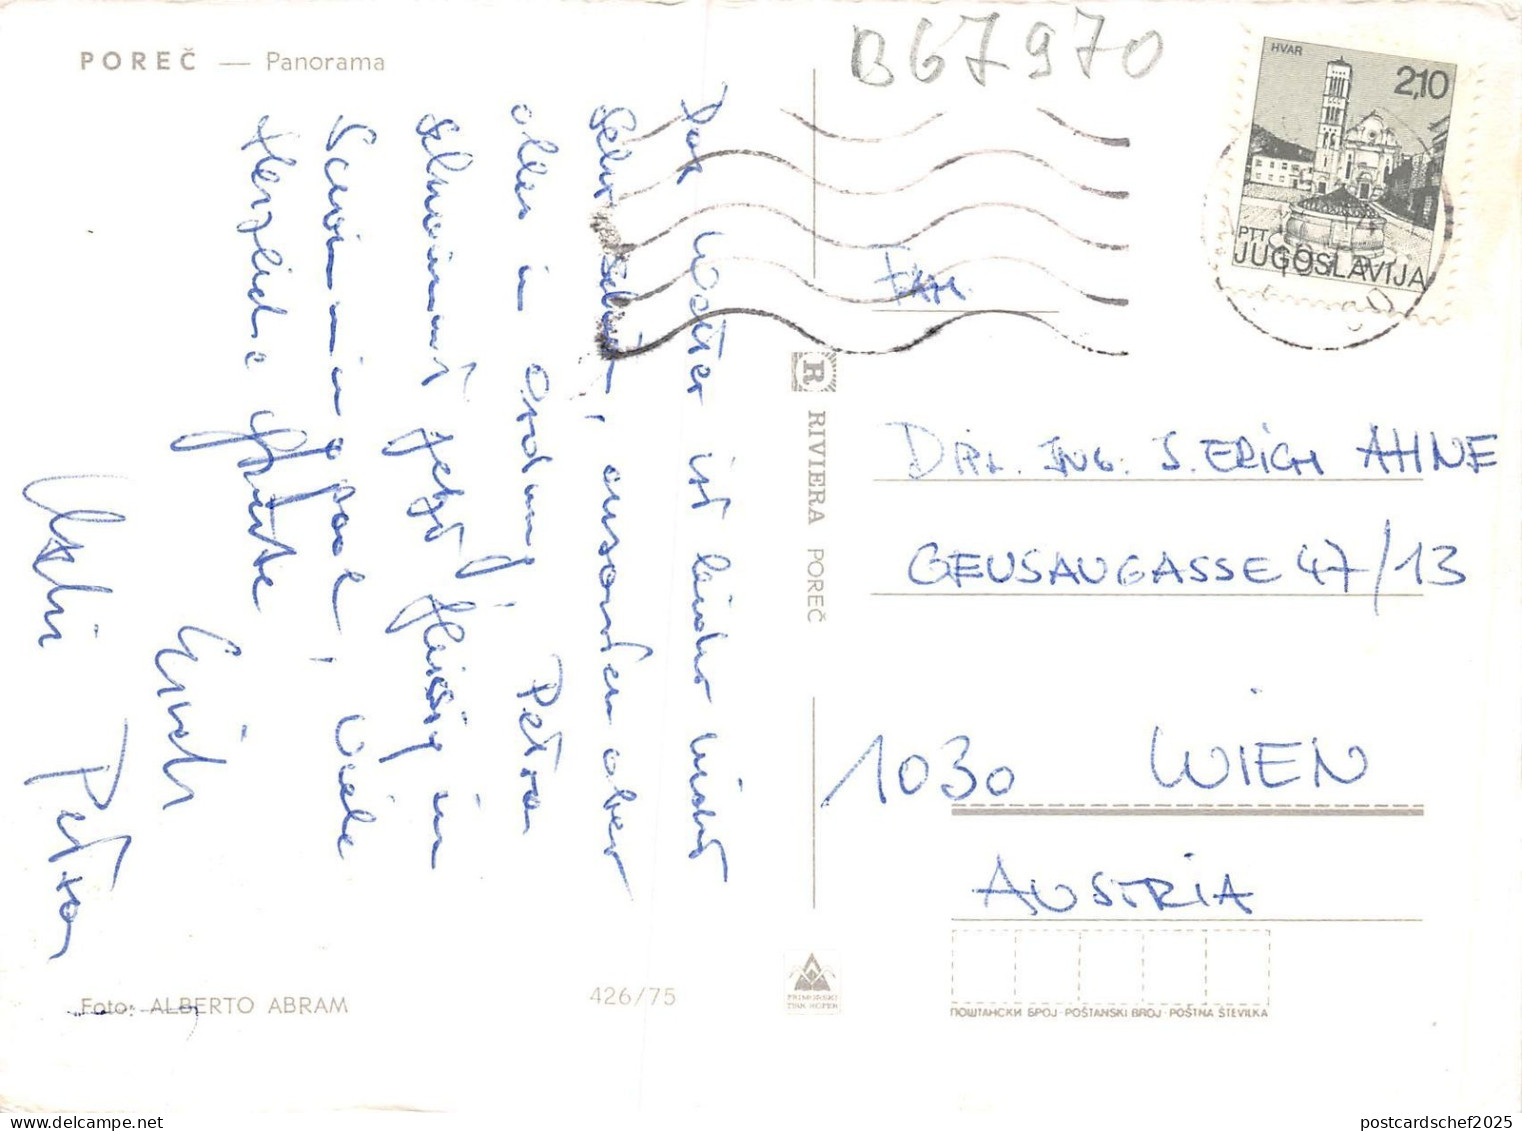 POREČ — Panorama
B67970
HVAR
2,10
PTT
JUGOSLAVIJA
Das Wetter ist leider nicht
sehr schön, ansonsten aber
alles in Ordnung. Petra
schwimmt jetzt fleissig im
Swimmingpool, Viele
Herzliche Grüsse
Erich
Petra
FAM.
DIR. ING. J. ERICH AHNE
GEUSAUGASSE 47/13
1030 WIEN
AUSTRIA
R RIVIERA POREČ
Foto: ALBERTO ABRAM
426/75
PRIMORSKI
TISK KOPER
ПОШТАНСКИ БРОЈ - POŠTANSKI BROJ - POŠTNA ŠTEVILKA
postcardschef2025